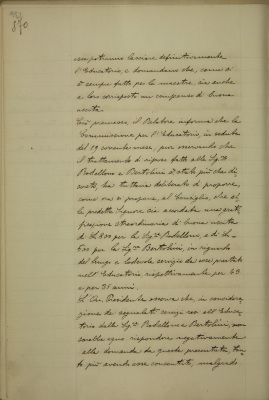 570
non potranno lasciare definitivamente
l'Educatorio, e domandano che, come si
è sempre fatto per le maestre, sia anche
a loro corrisposto un compenso di buona
uscita.
Ciò premesso, il Relatore informa che la
Commissione per l'Educatorio, in seduta
del 19 corrente mese, pur osservando che
il trattamento di riposo fatto alle Sig.re
Rebellino e Bertolini è stato più che di
screto, ha tuttavia deliberato di proporre,
come ora si propone, al Consiglio, che al
le predette Signore sia accordata una grati
ficazione straordinaria di buona uscita
di L. 800 per la Sig.ra e di L.
500 per la Sig.ra Bertolini, in riguardo
del lungo e lodevole servizio da esse prestato
nell'Educatorio rispettivamente per 42
e per 35 anni.
Il Cav. Presidente osserva che, in considera
zione dei segnalati servizi resi all'Educa
torio dalle Sig.re e Bertolini, non
sarebbe equo rispondere negativamente
alla domanda da queste presentata, tan
to più avendo esse consentito, malgrado